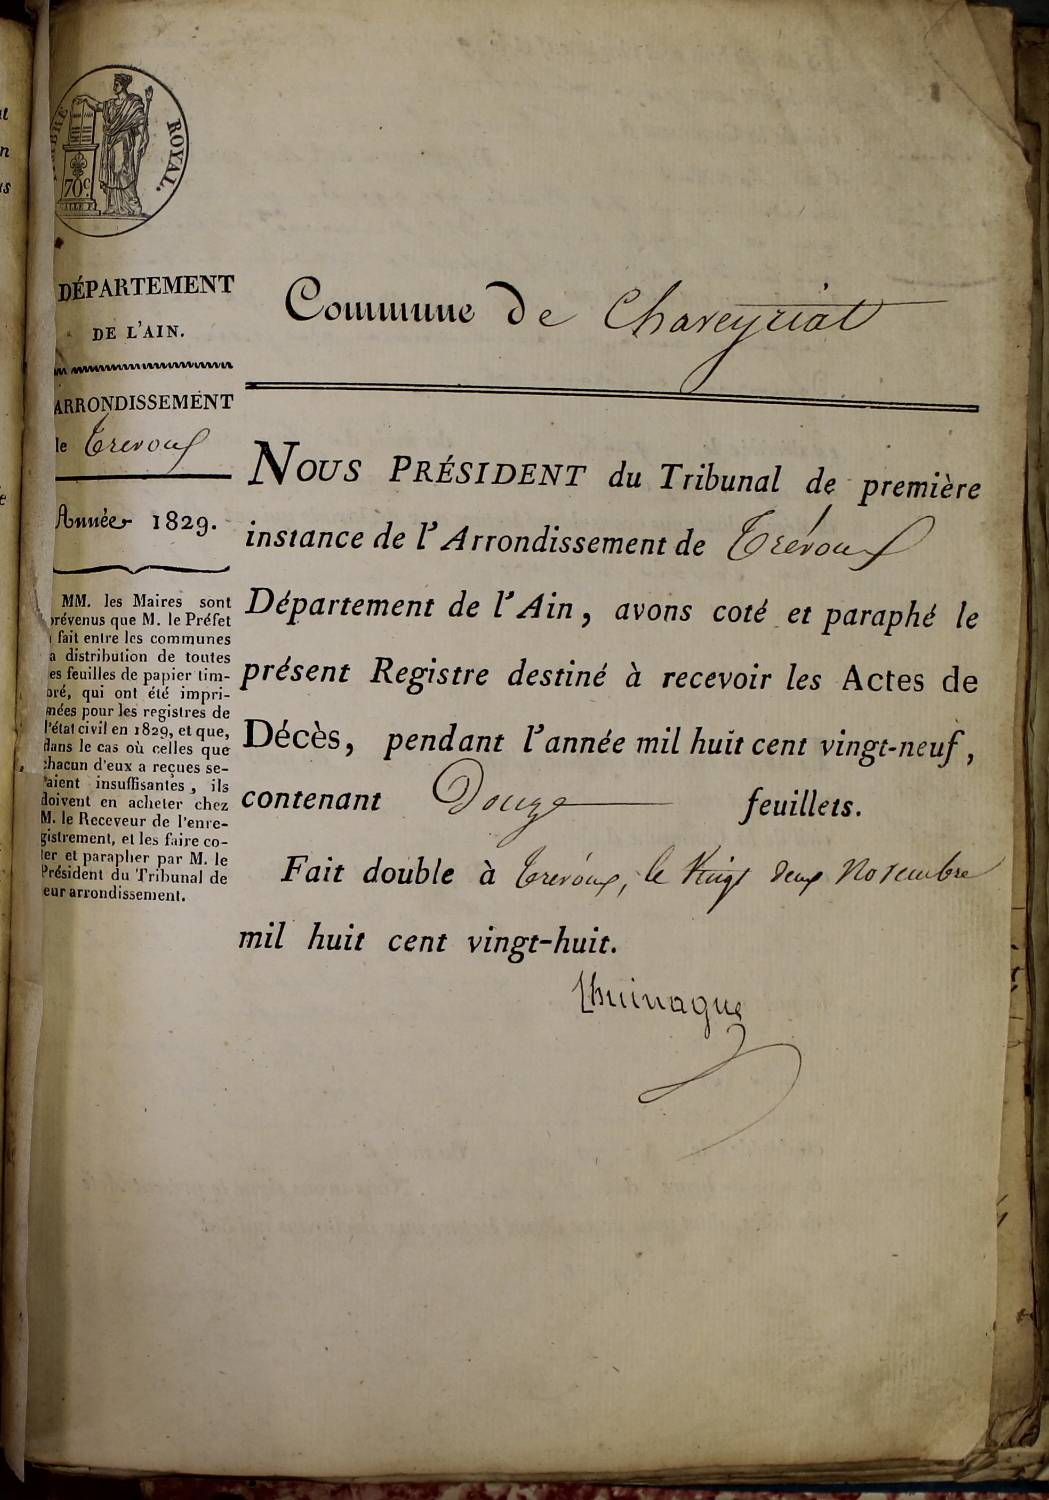 ROYAL.
70c.
DÉPARTEMENT
DE L'AIN.
ARRONDISSEMENT
de Trévoux
Année 1829.
MM. les Maires sont
prévenus que M. le Préfet
fait entre les communes
la distribution de toutes
les feuilles de papier tim-
bré, qui ont été impri-
mées pour les registres de
l'état civil en 1829, et que,
dans le cas où celles que
chacun d'eux a reçues se-
raient insuffisantes, ils
doivent en acheter chez
M. le Receveur de l'enre-
gistrement, et les faire co-
ter et parapher par M. le
Président du Tribunal de
leur arrondissement.
Commune de Chaveyriat
NOUS PRÉSIDENT du Tribunal de première
instance de l'Arrondissement de Trévoux
Département de l'Ain, avons coté et paraphé le
présent Registre destiné à recevoir les Actes de
Décès, pendant l'année mil huit cent vingt-neuf,
contenant Douze feuillets.
Fait double à Trévoux, le Vingt deux Novembre
mil huit cent vingt-huit.